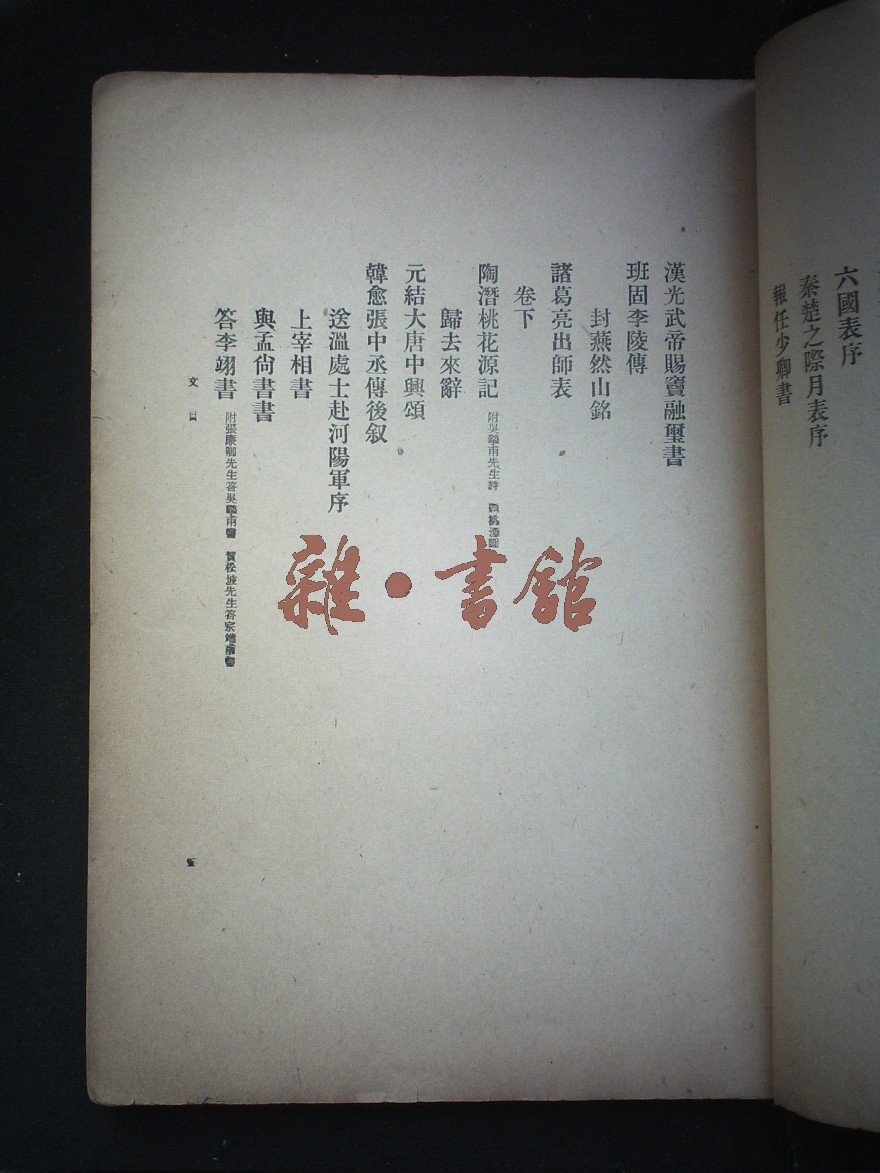 六國表序
秦楚之際月表序
報任少卿書
漢光武帝賜竇融璽書
班固李陵傳
封燕然山銘
諸葛亮出師表
卷下
陶潛桃花源記 附吳摯甫先生詩
歸去來辭
元結大唐中興頌
韓愈張中丞傳後叙
送溫處士赴河陽軍序
上宰相書
與孟尙書書
答李翊書 附張廉卿先生答吳摯甫書 賀松坡先生答宗端甫書
文目
五
雜·書館